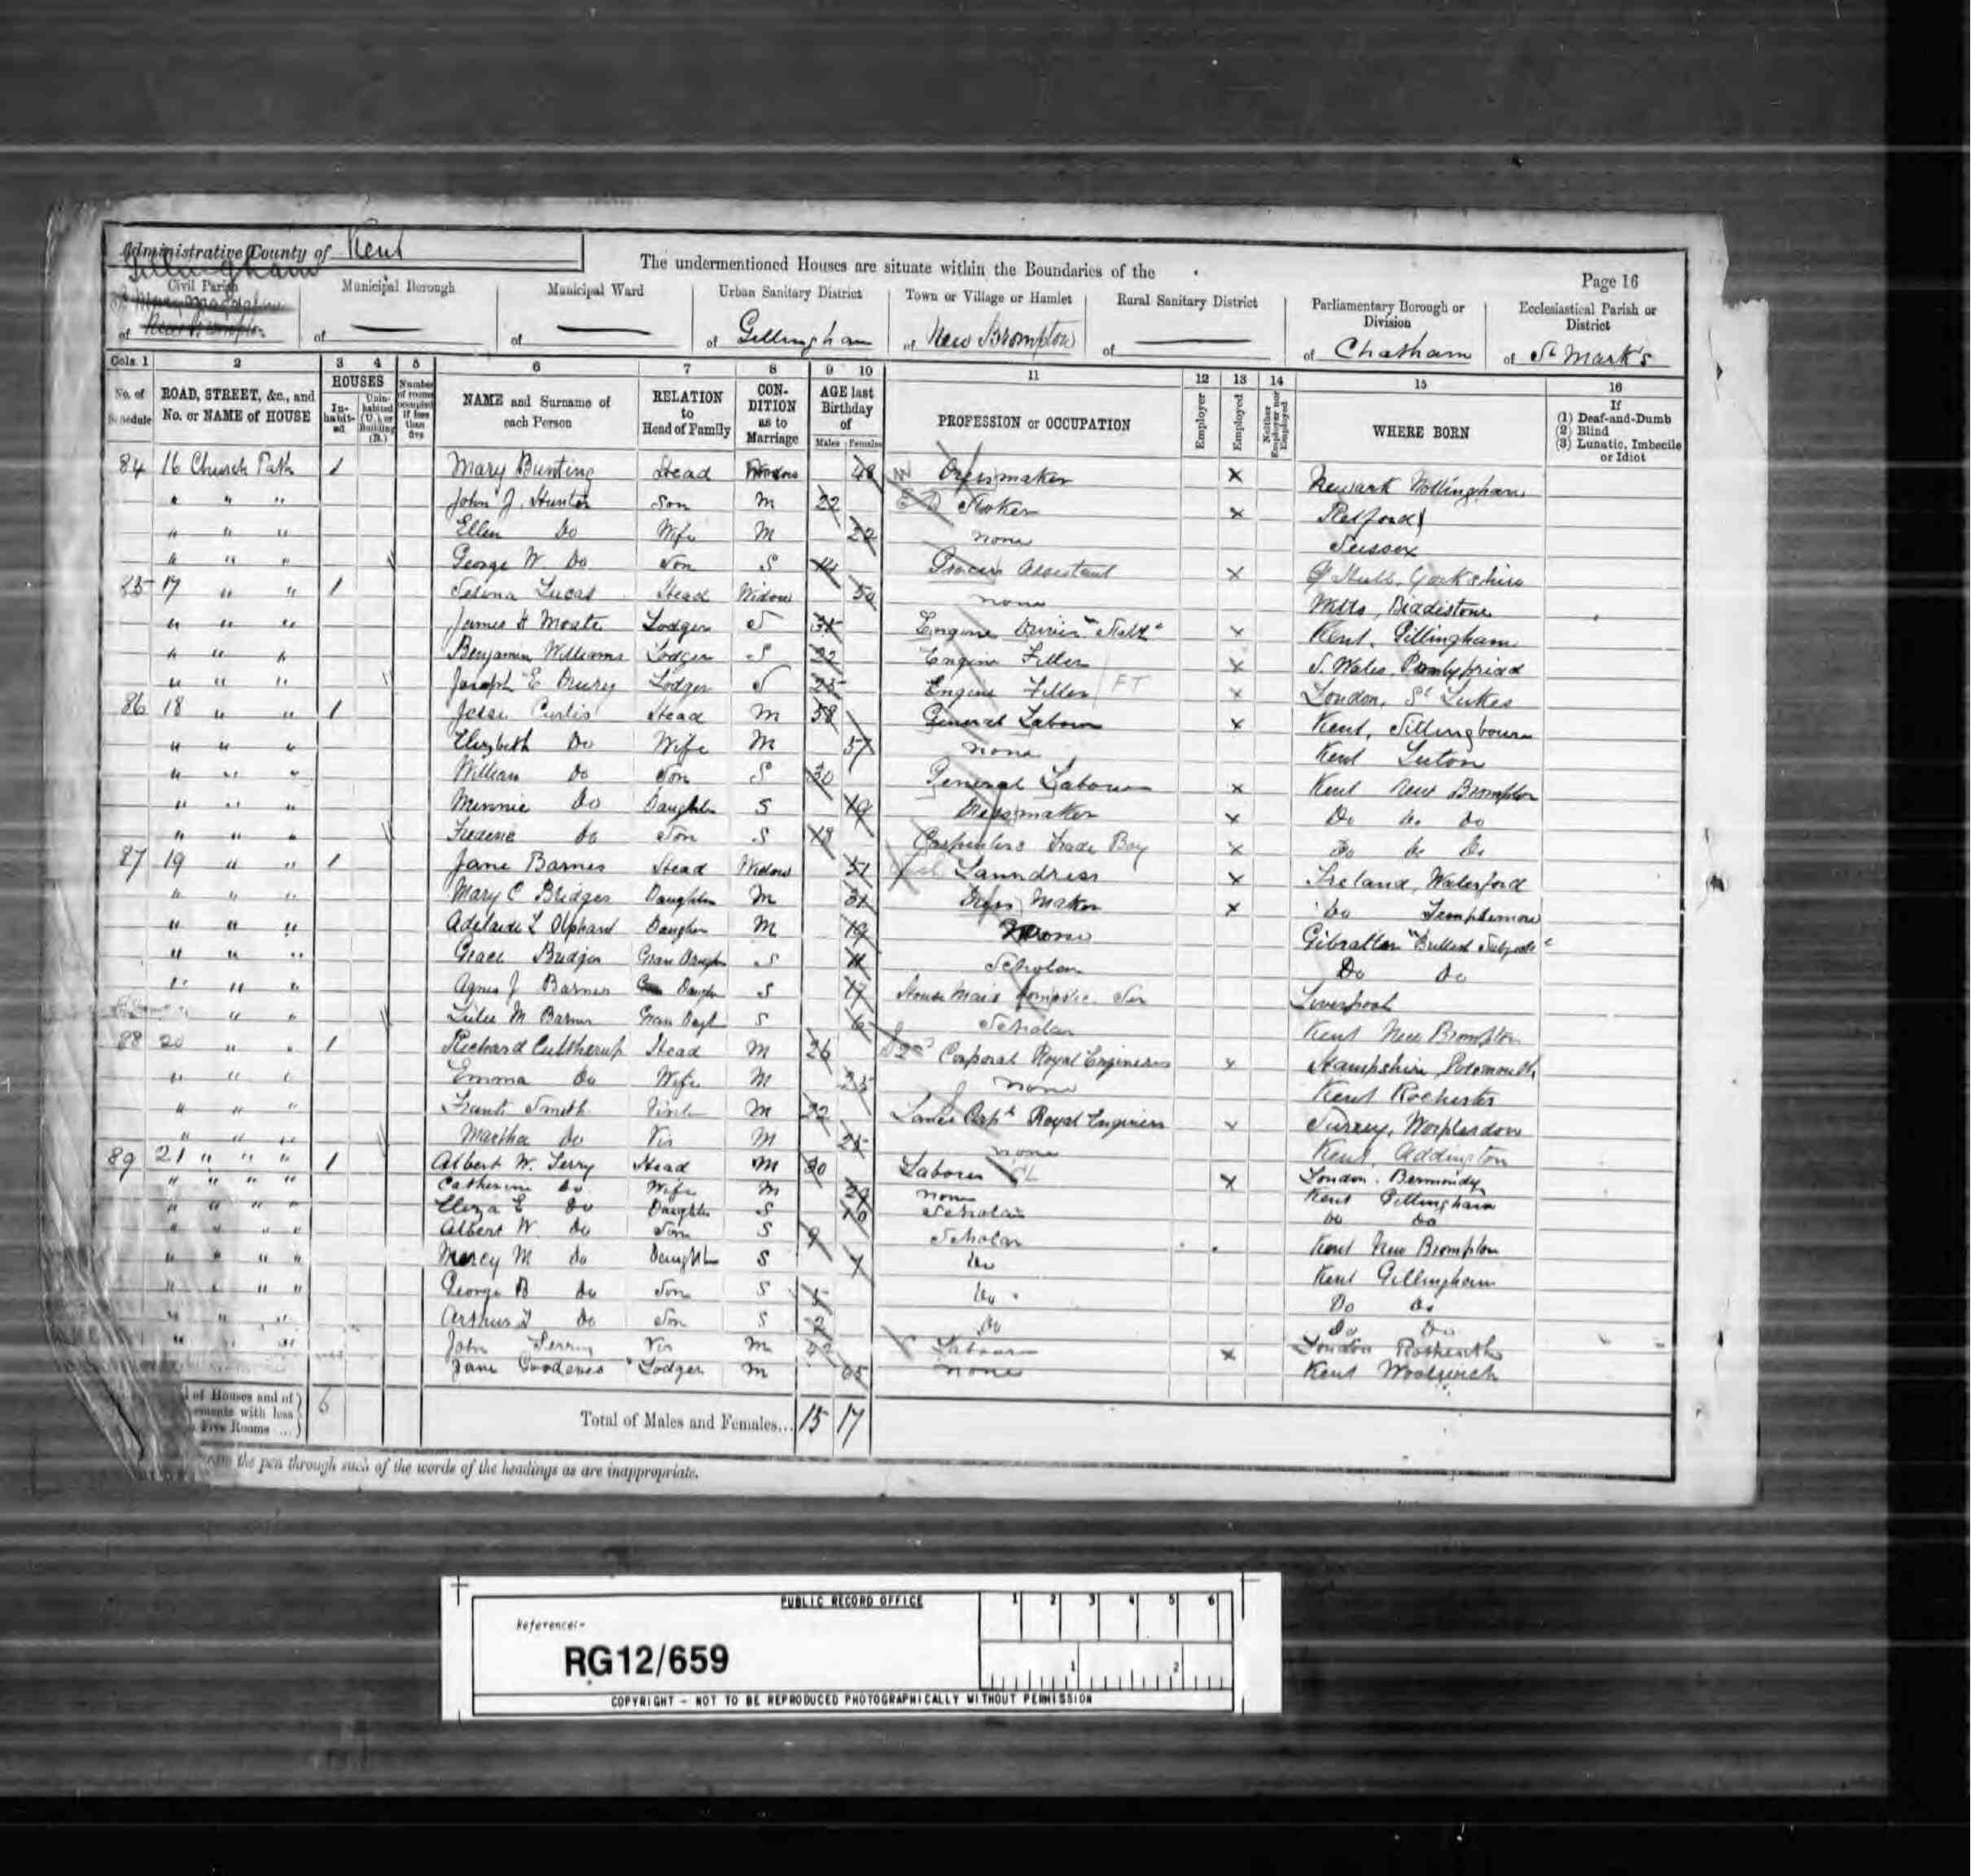 Administrative County of Kent
The undermentioned Houses are situate within the Boundaries of the
Page 16
Gillingham
Civil Parish
Municipal Borough
Municipal Ward
Urban Sanitary District
Town or Village or Hamlet
Rural Sanitary District
Parliamentary Borough or Division
Ecclesiastical Parish or District
of New Brompton
of —
of —
of Gillingham
of New Brompton
of —
of Chatham
of St Mark's
Cols. 1 2 3 4 5 6 7 8 9 10 11 12 13 14 15 16
No. of Schedule
ROAD, STREET, &c., and No. or NAME of HOUSE
HOUSES
In-habit-ed
Unin-habited (U.) or Building (B.)
Number of rooms occupied if less than five
NAME and Surname of each Person
RELATION to Head of Family
CON-DITION as to Marriage
AGE last Birthday of
Males Females
PROFESSION or OCCUPATION
Employer
Employed
Neither Employer nor Employed
WHERE BORN
If (1) Deaf-and-Dumb (2) Blind (3) Lunatic, Imbecile or Idiot
84 16 Church Path 1 Mary Bunting Head Widow 48 Dressmaker x Newark Nottingham
" " " John J. Hunter Son M 22 Stoker x Retford
" " " Ellen Do Wife M 22 none Sussex
" " " George W. Do Son S 14 Assistant x Hull, Yorkshire
85 17 " " 1 Selina Lucas Head Widow 50 none Wilts, Biddistone
" " " James H Moate Lodger S Engine Driver x Kent, Gillingham
" " " Benjamin Williams Lodger S 22 Engine Fitter x S. Wales,
" " " Joseph E Drury Lodger S 25 Engine Fitter FT x London, St Lukes
86 18 " " 1 Jesse Curtis Head M 58 General Labour x Kent, Sittingbourn
" " " Elizbeth Do Wife M 57 none Kent Luton
" " " William Do Son S 30 General Labour x Kent New Brompton
" " " Minnie Do Daughter S 19 Dressmaker x Do Do Do
" " " Do Son S Carpenters Trade Boy x Do Do Do
87 19 " " 1 Jane Barnes Head Widow Laundress x Ireland, Waterford
" " " Mary C Bridges Daughter M 31 Dress Maker x Do Templemore
" " " Adelaide L Daughter M 19 None Gibralter "
" " " Grace Bridges Gran Daughter S 11 Scholar Do Do
" " " Agnes J Barnes Daugh S 17 House Maid Domestic Ser Liverpool
" " " M Barnes Gran Daugh S 6 Scholar Kent New Brompton
88 20 " " 1 Richard Head M 26 2nd Corporal Royal Engineers x Hampshire
" " " Emma Do Wife M 25 none Kent Rochester
" " " Frank Smith M 22 Lance Corpl Royal Engineers x Surrey, Worplesdon
" " " Martha Do Vis M none Kent, Addington
89 21 " " " 1 Albert W. Terry Head M 30 Labourer GL x London. Bermondsy
" " " " Catherine Do Wife M 29 none Kent Gillingham
" " " " Eliza E Do Daughter S 10 Scholar Do Do
" " " " Albert W. Do Son S 9 Scholar Kent New Brompton
" " " " Mercy M Do Daughter S 7 Do Kent Gillingham
" " " " George B Do Son S 5 Do Do Do
" " " Do Son S 2 Do Do Do
" " John Vis M Labourer x London Rotherhithe
Jane Lodger M 65 none Kent Woolwich
l of Houses and of
ements with less
Five Rooms ...
6
Total of Males and Females... 15 17
the pen through such of the words of the headings as are inappropriate.
PUBLIC RECORD OFFICE
Reference:-
RG12/659
1 2 3 4 5 6
1 2
COPYRIGHT - NOT TO BE REPRODUCED PHOTOGRAPHICALLY WITHOUT PERMISSION